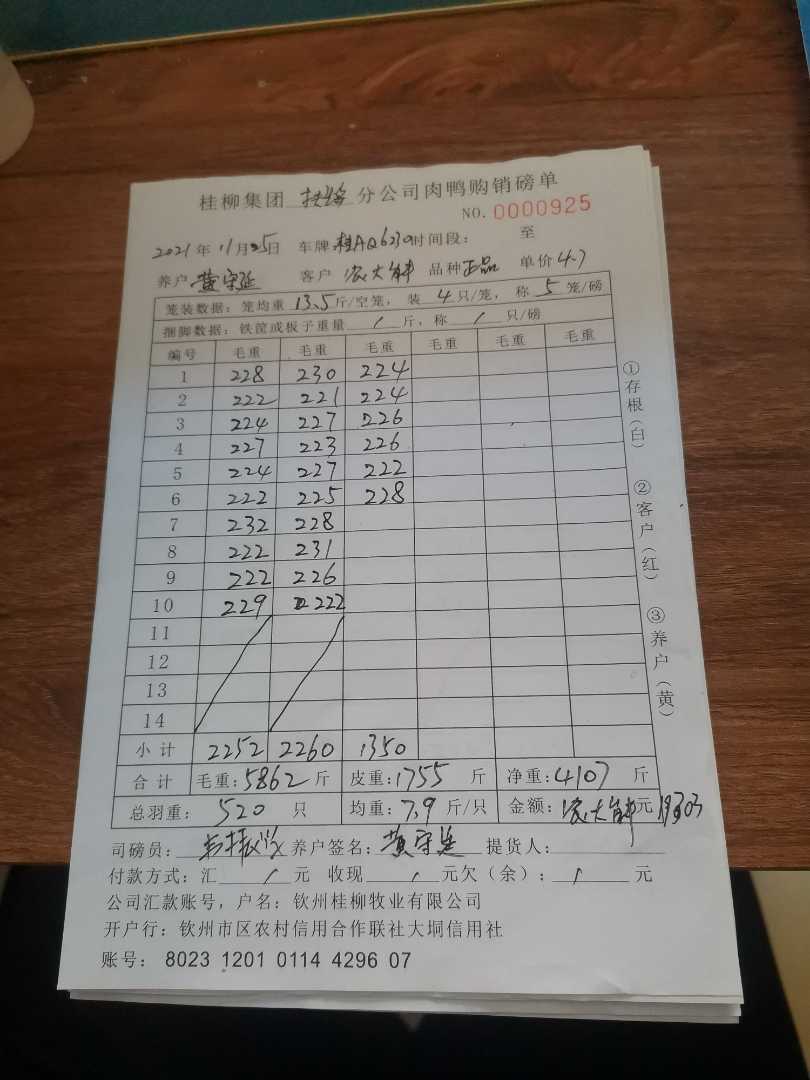 桂柳集团 扶绥 分公司肉鸭购销磅单
NO. 0000925
2021年 11月25日 车牌:桂AQ6230时间段: 至
养户 黄守延 客户 农大 品种 正品 单价 4.7
笼装数据: 笼均重 13.5斤/空笼, 装 4 只/笼, 称 5 笼/磅
捆脚数据: 铁筐或板子重量 / 斤, 称 / 只/磅
编号 毛重 毛重 毛重 毛重 毛重 毛重
1 228 230 224
2 222 221 224
3 224 227 226
4 227 223 226
5 224 227 222
6 222 225 228
7 232 228
8 222 231
9 222 226
10 229 222
11
12
13
14
小计 2252 2260 1350
合计 毛重:5862 斤 皮重:1755 斤 净重:4107 斤
总羽重: 520 只 均重:7.9 斤/只 金额: 农大 元 19303
司磅员: 养户签名: 黄守延 提货人:
付款方式: 汇 / 元 收现 / 元欠(余): / 元
公司汇款账号, 户名: 钦州桂柳牧业有限公司
开户行: 钦州市区农村信用合作联社大垌信用社
账号: 8023 1201 0114 4296 07
①存根(白) ②客户(红) ③养户(黄)